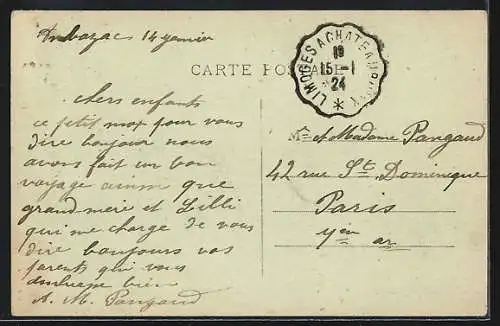 Ambazac 14 janvier
CARTE POSTALE
LIMOGES A CHATEAUROUX
19
15-1
24
chers enfants
ce petit mot pour vous
dire bonjour nous
avons fait un bon
voyage ainsi que
grand mère et Lilli
qui me charge de vous
dire bonjours vos
parents qui vous
bien
A. M. Pangaud
Mr et Madame Pangaud
42 rue St Dominique
Paris
7em ar